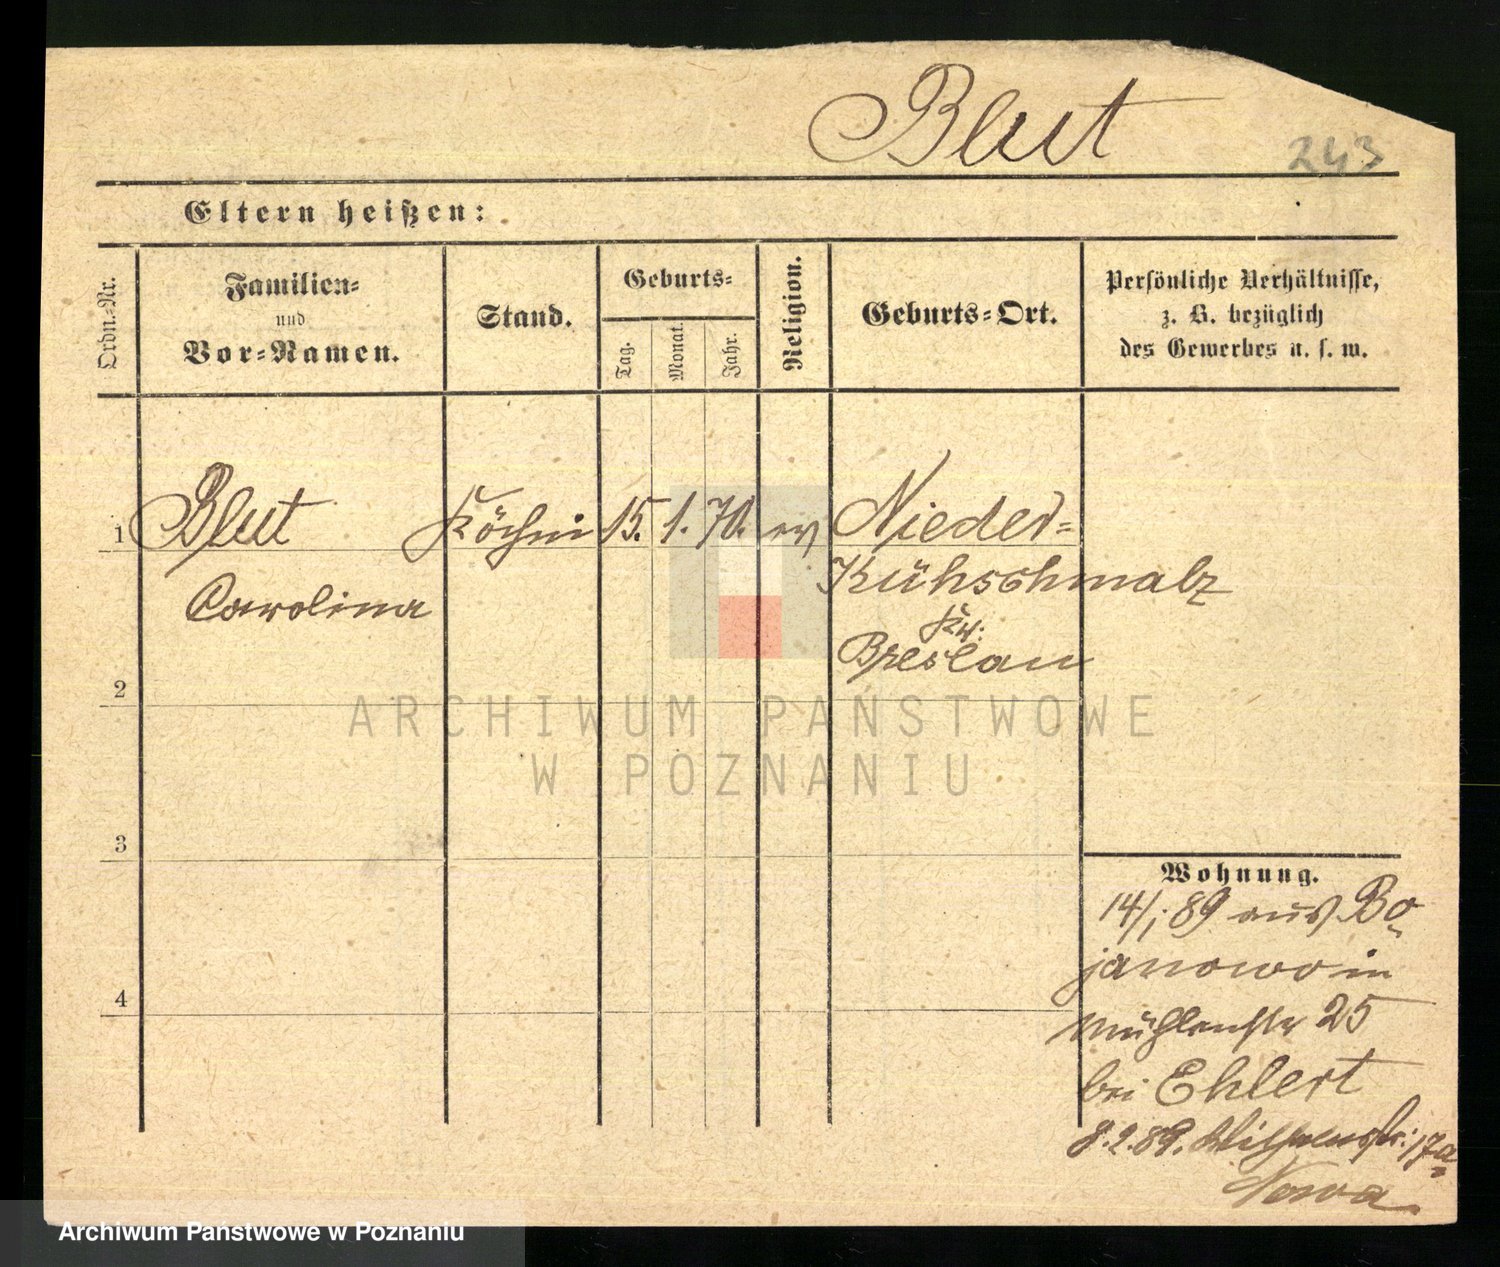 Blut
243
Eltern heißen:
Ordn.-Nr.
Familien-
und
Vor-Namen.
Stand.
Geburts-
Tag.
Monat.
Jahr.
Religion.
Geburts-Ort.
Persönliche Verhältnisse,
z. B. bezüglich
des Gewerbes u. s. w.
1 Blut Köchin 15. 1. 70. ev Nieder-
Carolina Kühschmalz
Kr:
Breslau
2
ARCHIWUM PAŃSTWOWE
W POZNANIU
3
Wohnung.
14/1 89 aus Bo-
janowo in
4
Mühlenstr 25
bei Ehlert
8.2.89. Wilhelmstr: 17a
Nowa
Archiwum Państwowe w Poznaniu